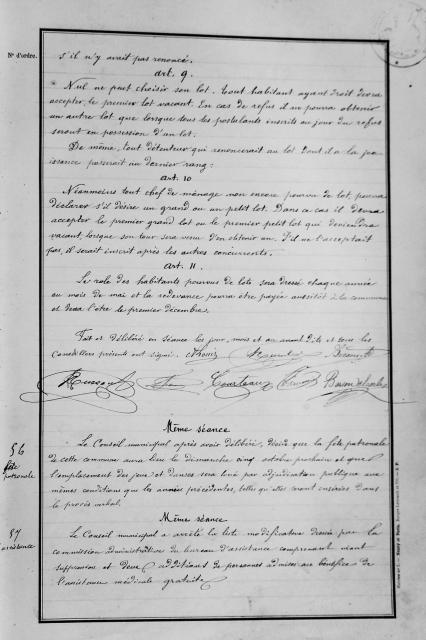 N.º d'ordre.
s'il n'y avait pas renoncé.
art. 9.
Nul ne peut choisir son lot. Tout habitant ayant droit devra
accepter le premier lot vacant. En cas de refus il ne pourra obtenir
un autre lot que lorsque tous les postulants inscrits au jour du refus
seront en possession d'un lot.
De même, tout détenteur qui renoncerait au lot dont il a la jou
issance passerait au dernier rang.
art. 10
Néanmoins tout chef de ménage non encore pourvu de lot, pourra
déclarer s'il désire un grand ou un petit lot. Dans ce cas il devra
accepter le premier grand lot ou le premier petit lot qui deviendra
vacant, lorsque son tour sera venu d'en obtenir un. S'il ne l'acceptait
pas, il serait inscrit après les autres concurrents.
art. 11.
Le rôle des habitants pourvus de lots sera dressé chaque année
au mois de mai et la redevance pourra être payée aussitôt à la commune
et devra l'être le premier décembre.
Fait et délibéré en séance les jour, mois et an avant dits et tous les
Conseillers présents ont signé.
Courteaux
Même séance
56
fête
patronale
Le Conseil municipal après avoir délibéré, décide que la fête patronale
de cette commune aura lieu le dimanche cinq octobre prochain et que
l'emplacement des jeux et danses sera loué par adjudication publique aux
mêmes conditions que les années précédentes, telles qu'elles seront insérées dans
le procès verbal.
Même séance
57
assistance
Le Conseil municipal a arrêté la liste modificative dressée par la
commission administrative du bureau d'assistance comprenant
suppression et deux additions de personnes admises au bénéfice de
l'assistance médicale gratuite